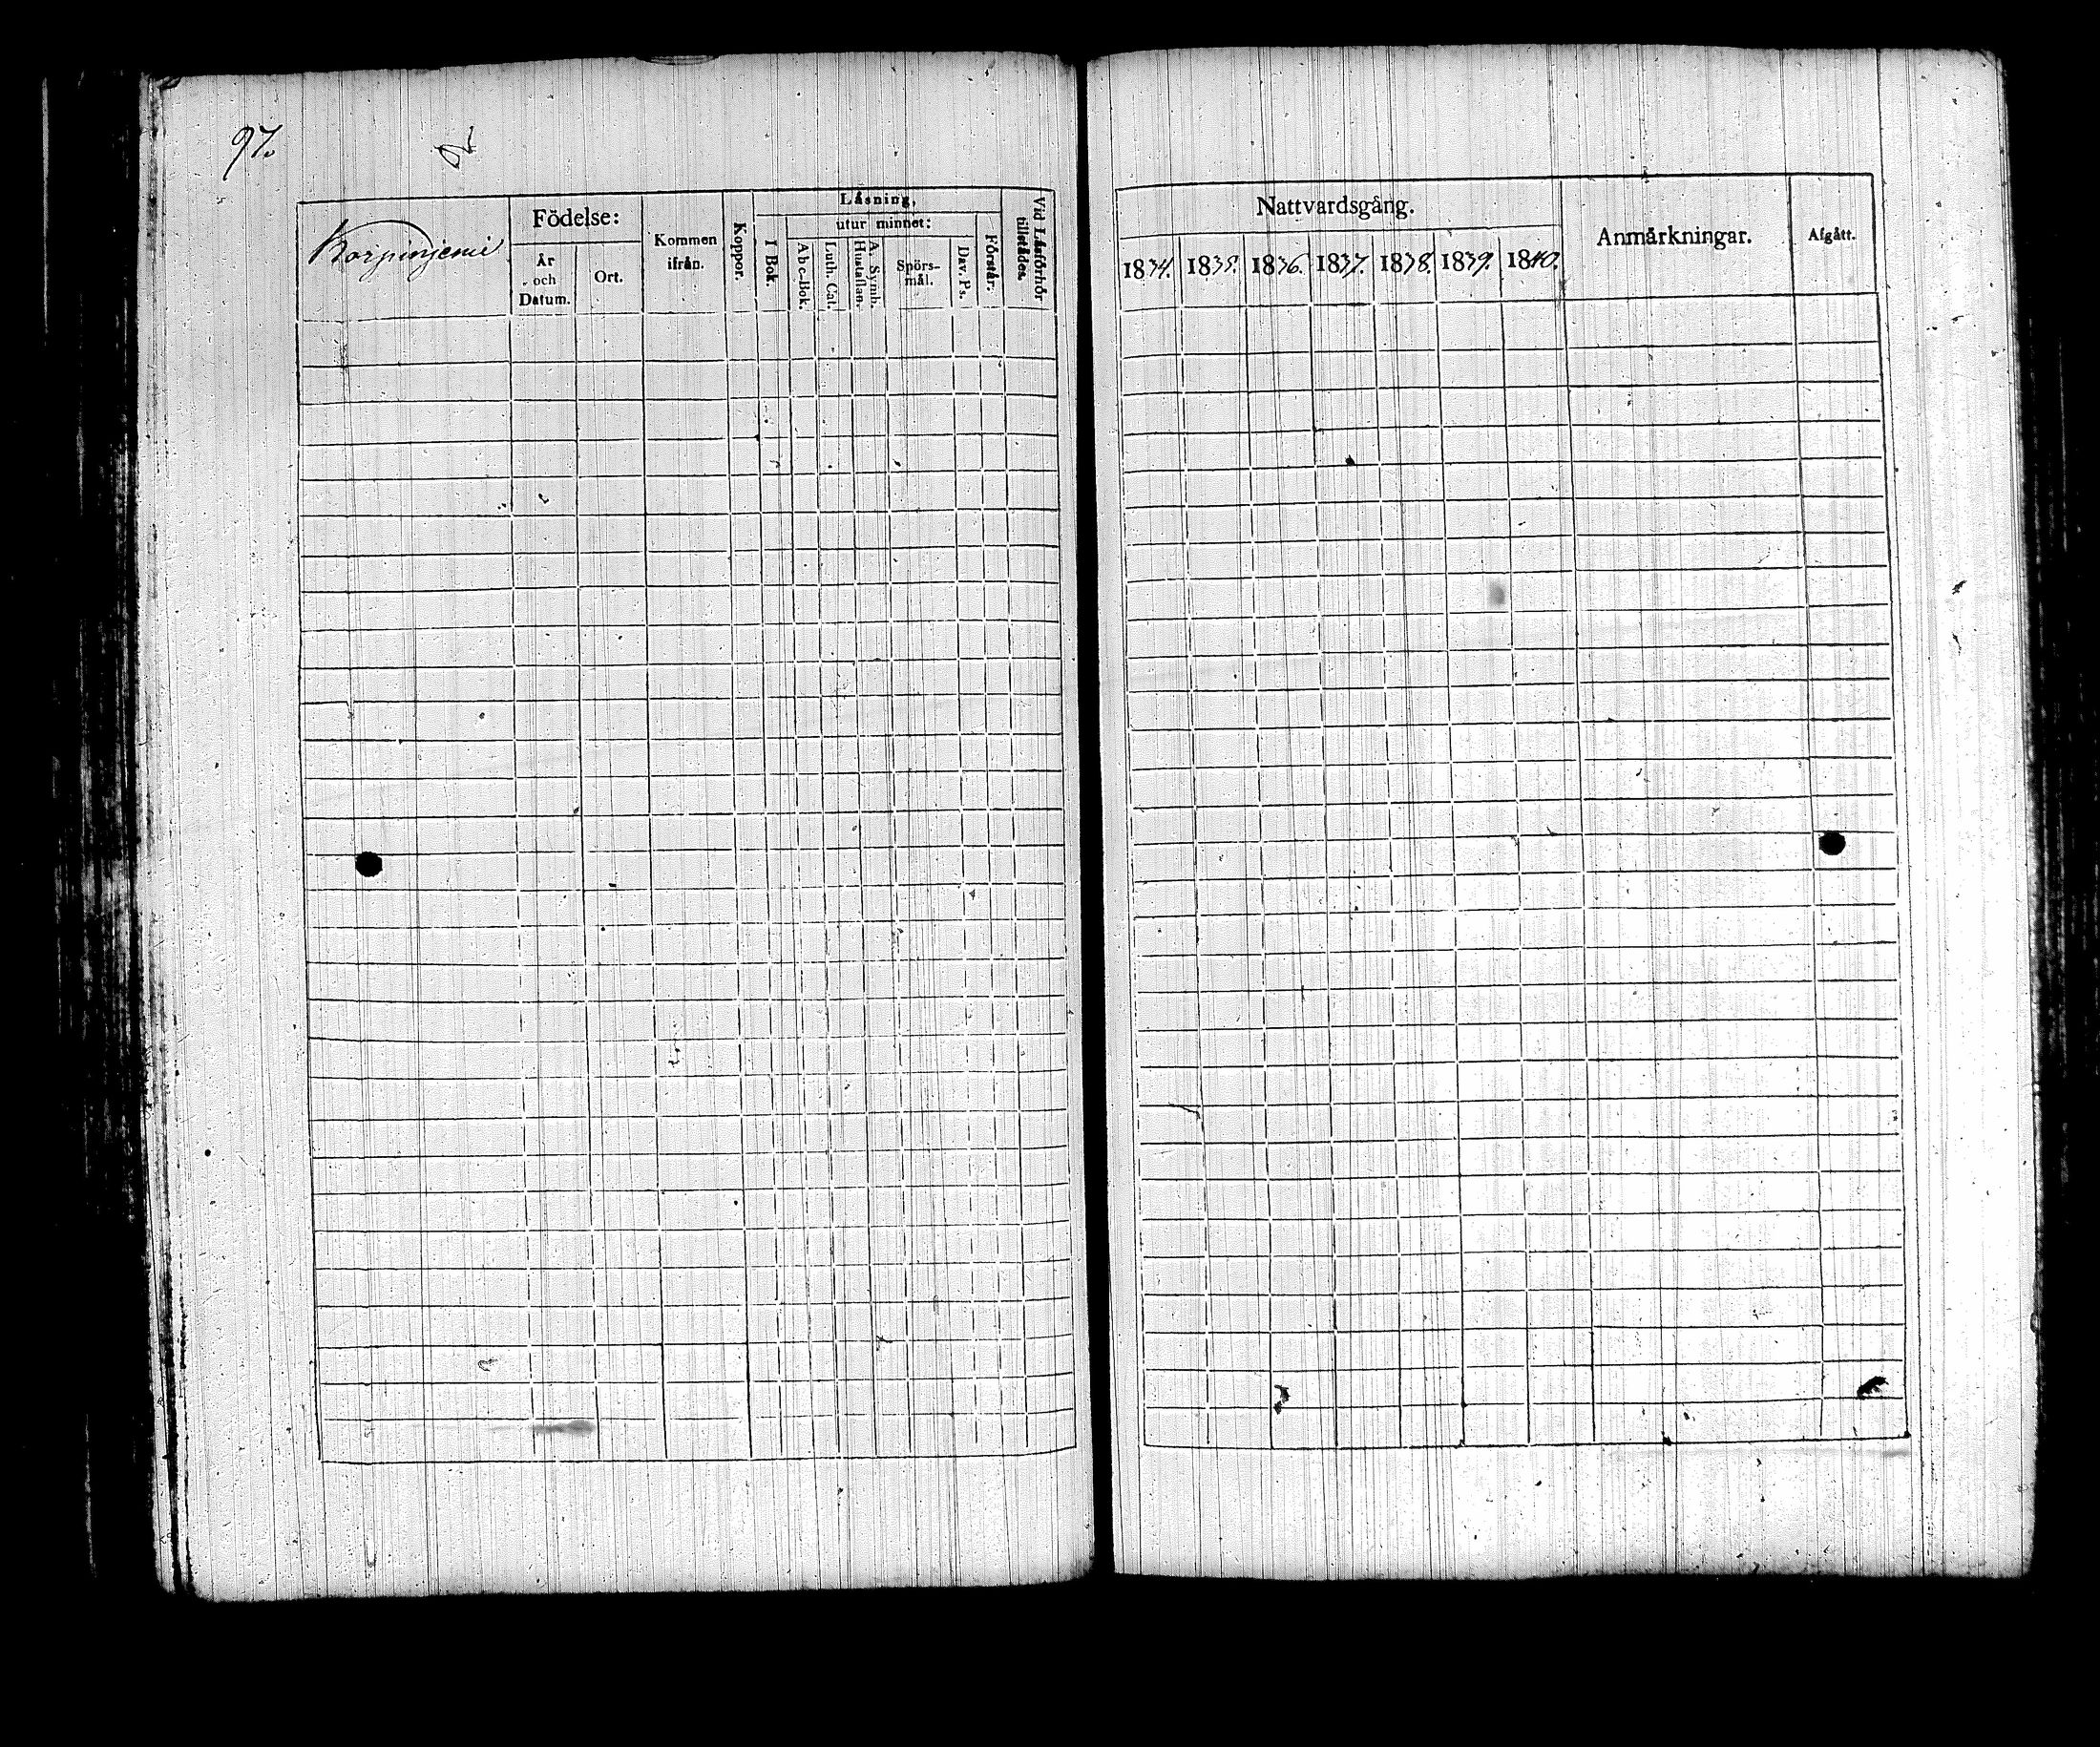 97.
Korpinjemi
Födelse:
År
och
Datum.
Ort.
Kommen
ifrån.
Koppor.
Låsning,
utur minnet:
I Bok.
Abc-Bok.
Luth. Cat.
A. Symb.
Hustaflan.
Spörs-
mål.
Dav. Ps.
Förstår.
Vid Låsförhör
tillstådes.
Nattvardsgång.
1834.
1835.
1836.
1837.
1838.
1839.
1840.
Anmårkningar.
Afgått.